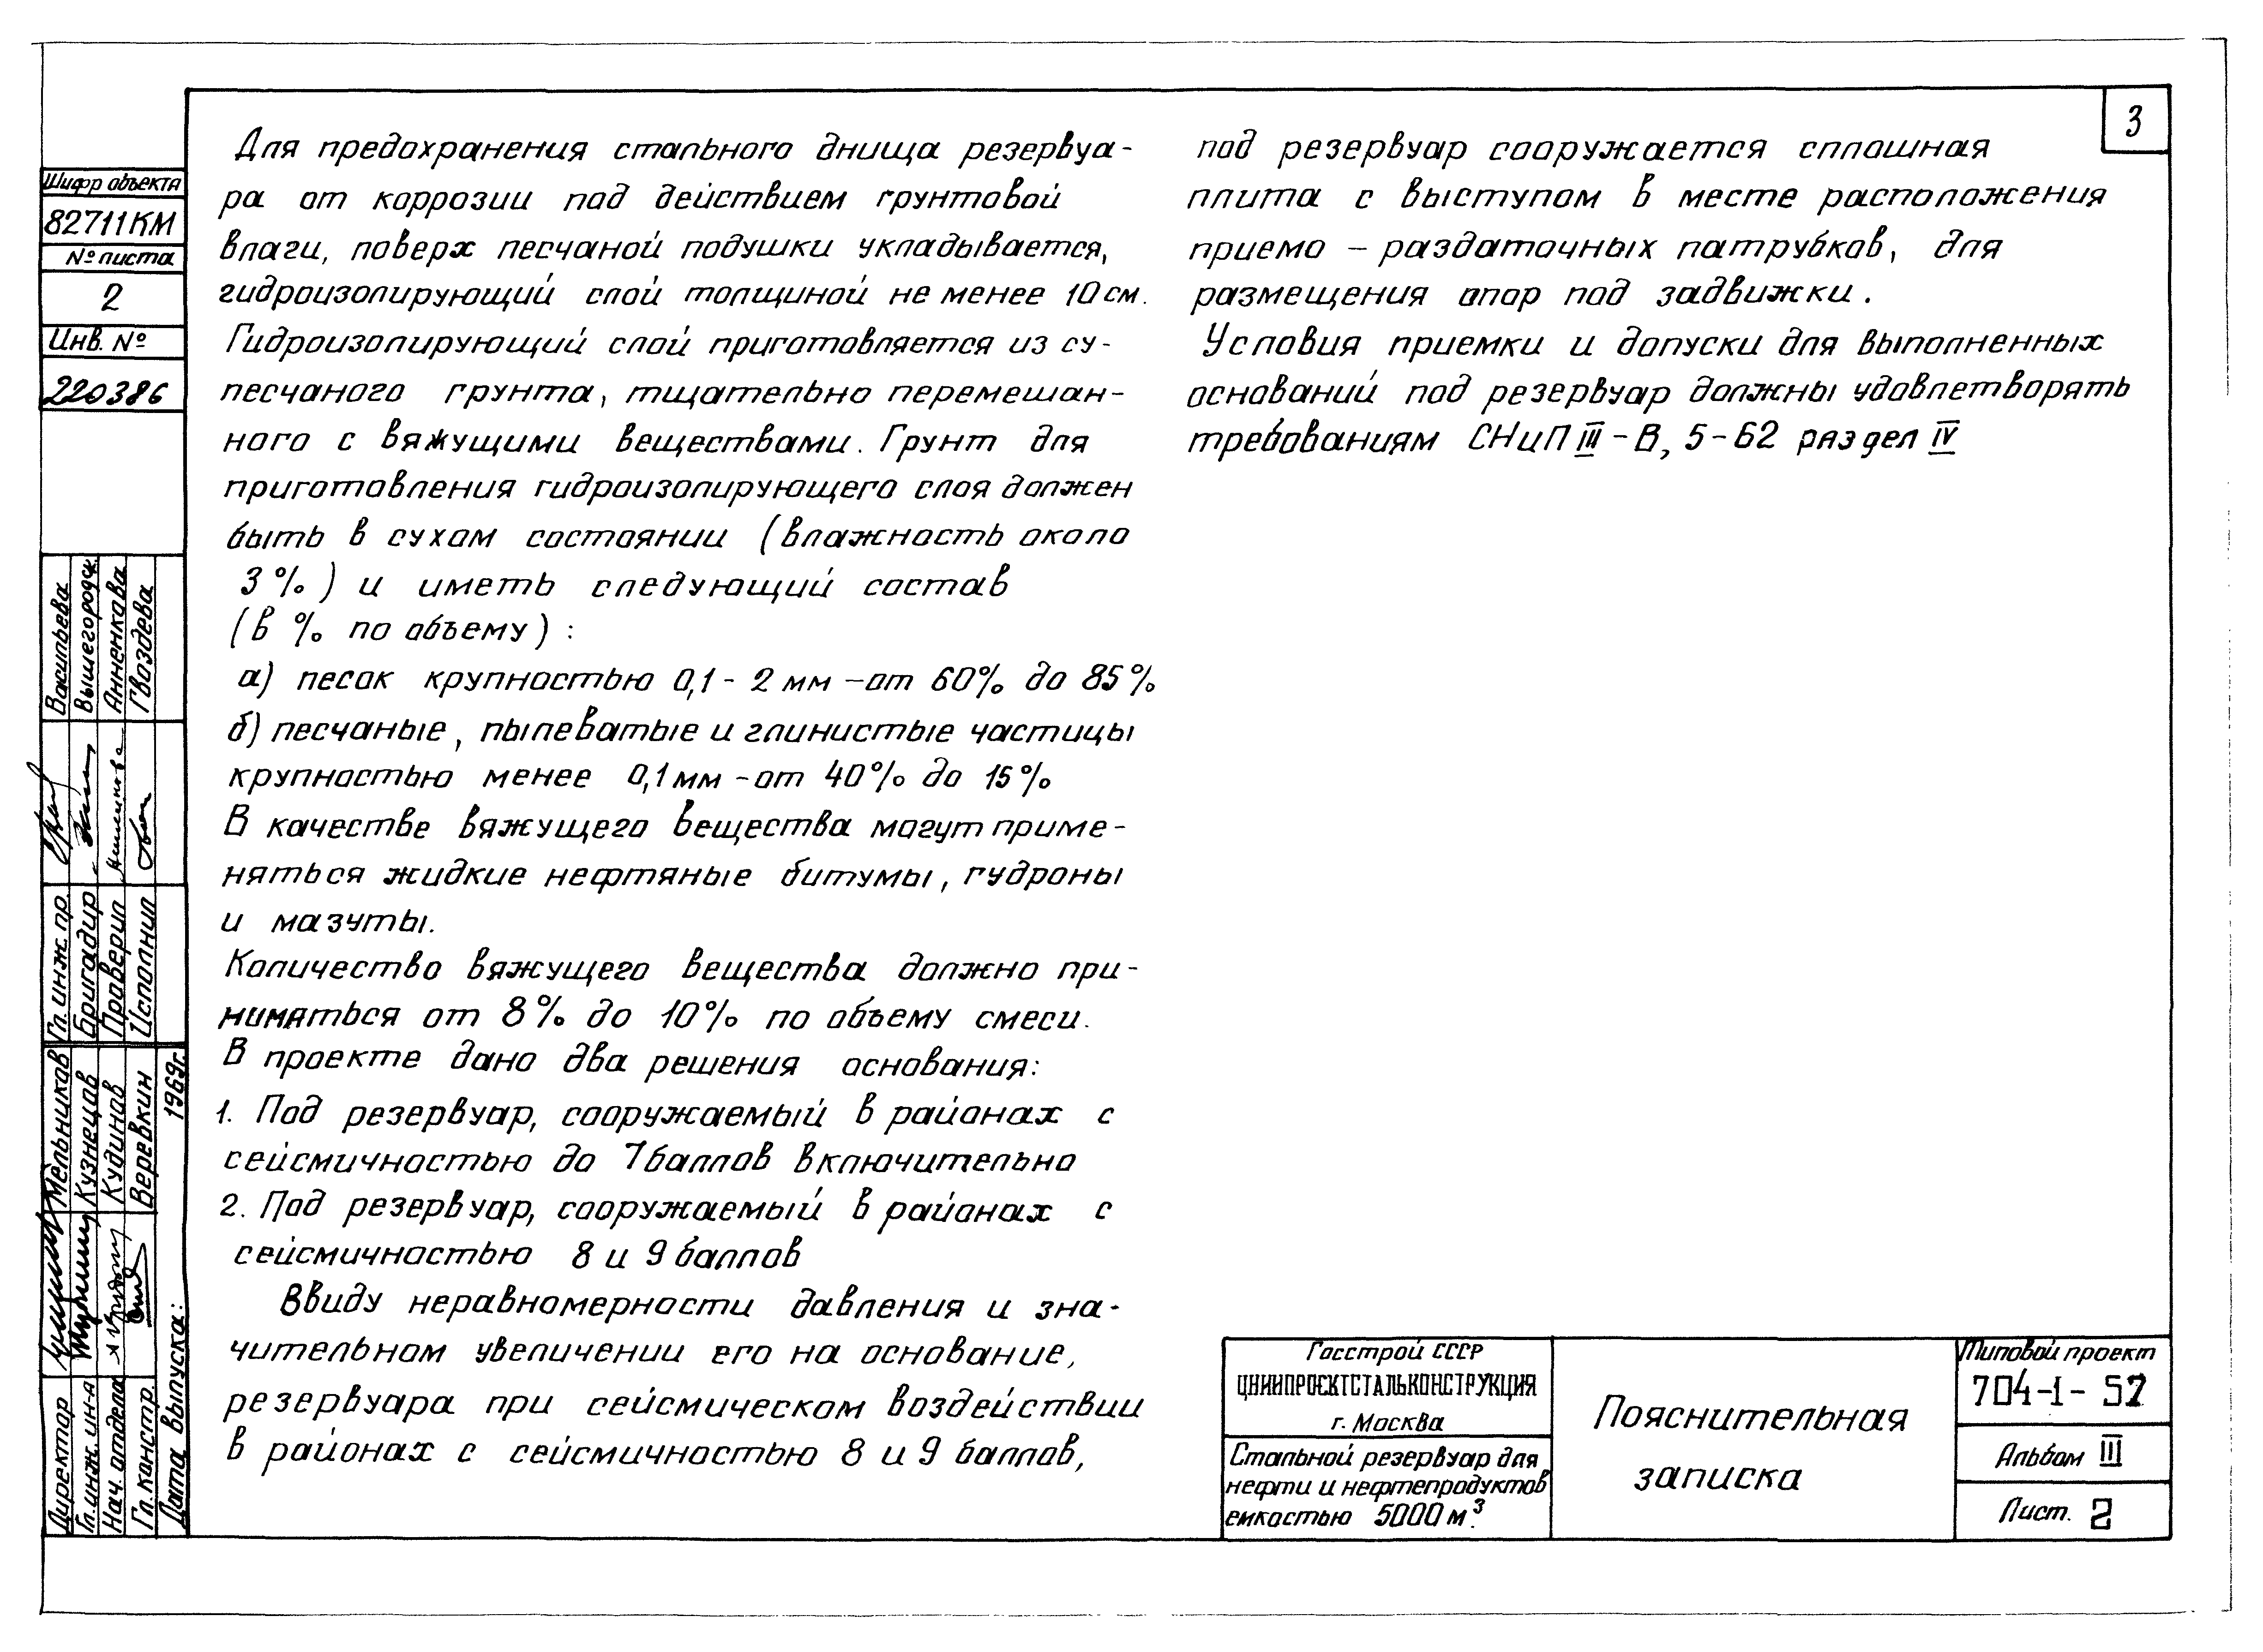 3
Для предохранения стального днища резервуа-
ра от коррозии под действием грунтовой
влаги, поверх песчаной подушки укладывается,
гидроизолирующий слой толщиной не менее 10 см.
Гидроизолирующий слой приготовляется из су-
песчаного грунта, тщательно перемешан-
ного с вяжущими веществами. Грунт для
приготовления гидроизолирующего слоя должен
быть в сухом состоянии (влажность около
3%) и иметь следующий состав
(в % по объему):
а) песок крупностью 0,1 - 2 мм - от 60% до 85%
б) песчаные, пылеватые и глинистые частицы
крупностью менее 0,1 мм - от 40% до 15%
В качестве вяжущего вещества могут приме-
няться жидкие нефтяные битумы, гудроны
и мазуты.
Количество вяжущего вещества должно при-
ниматься от 8% до 10% по объему смеси.
В проекте дано два решения основания:
1. Под резервуар, сооружаемый в районах с
сейсмичностью до 7 баллов включительно
2. Под резервуар, сооружаемый в районах с
сейсмичностью 8 и 9 баллов
Ввиду неравномерности давления и зна-
чительном увеличении его на основание,
резервуара при сейсмическом воздействии
в районах с сейсмичностью 8 и 9 баллов,
под резервуар сооружается сплошная
плита с выступом в месте расположения
приемо - раздаточных патрубков, для
размещения опор под задвижки.
Условия приемки и допуски для выполненных
оснований под резервуар должны удовлетворять
требованиям СНиП III - В, 5 - 62 раздел IV
Шифр объекта
82711КМ
№ листа
2
Инв. №
220386
Васильева
Вышегородск.
Анненкова
Гвоздева
Гл. инж. пр.
Бригадир
Проверил
Исполнил
Мельников
Кузнецов
Кудинов
Веревкин
1969г.
Директор
Гл. инж. ин-а
Нач. отдела
Гл. констр.
Дата выпуска:
Госстрой СССР
ЦНИИПРОЕКТСТАЛЬКОНСТРУКЦИЯ
г. Москва
Стальной резервуар для
нефти и нефтепродуктов
емкостью 5000 м³.
Пояснительная
записка
Типовой проект
704-1-52
Альбом III
Лист. 2